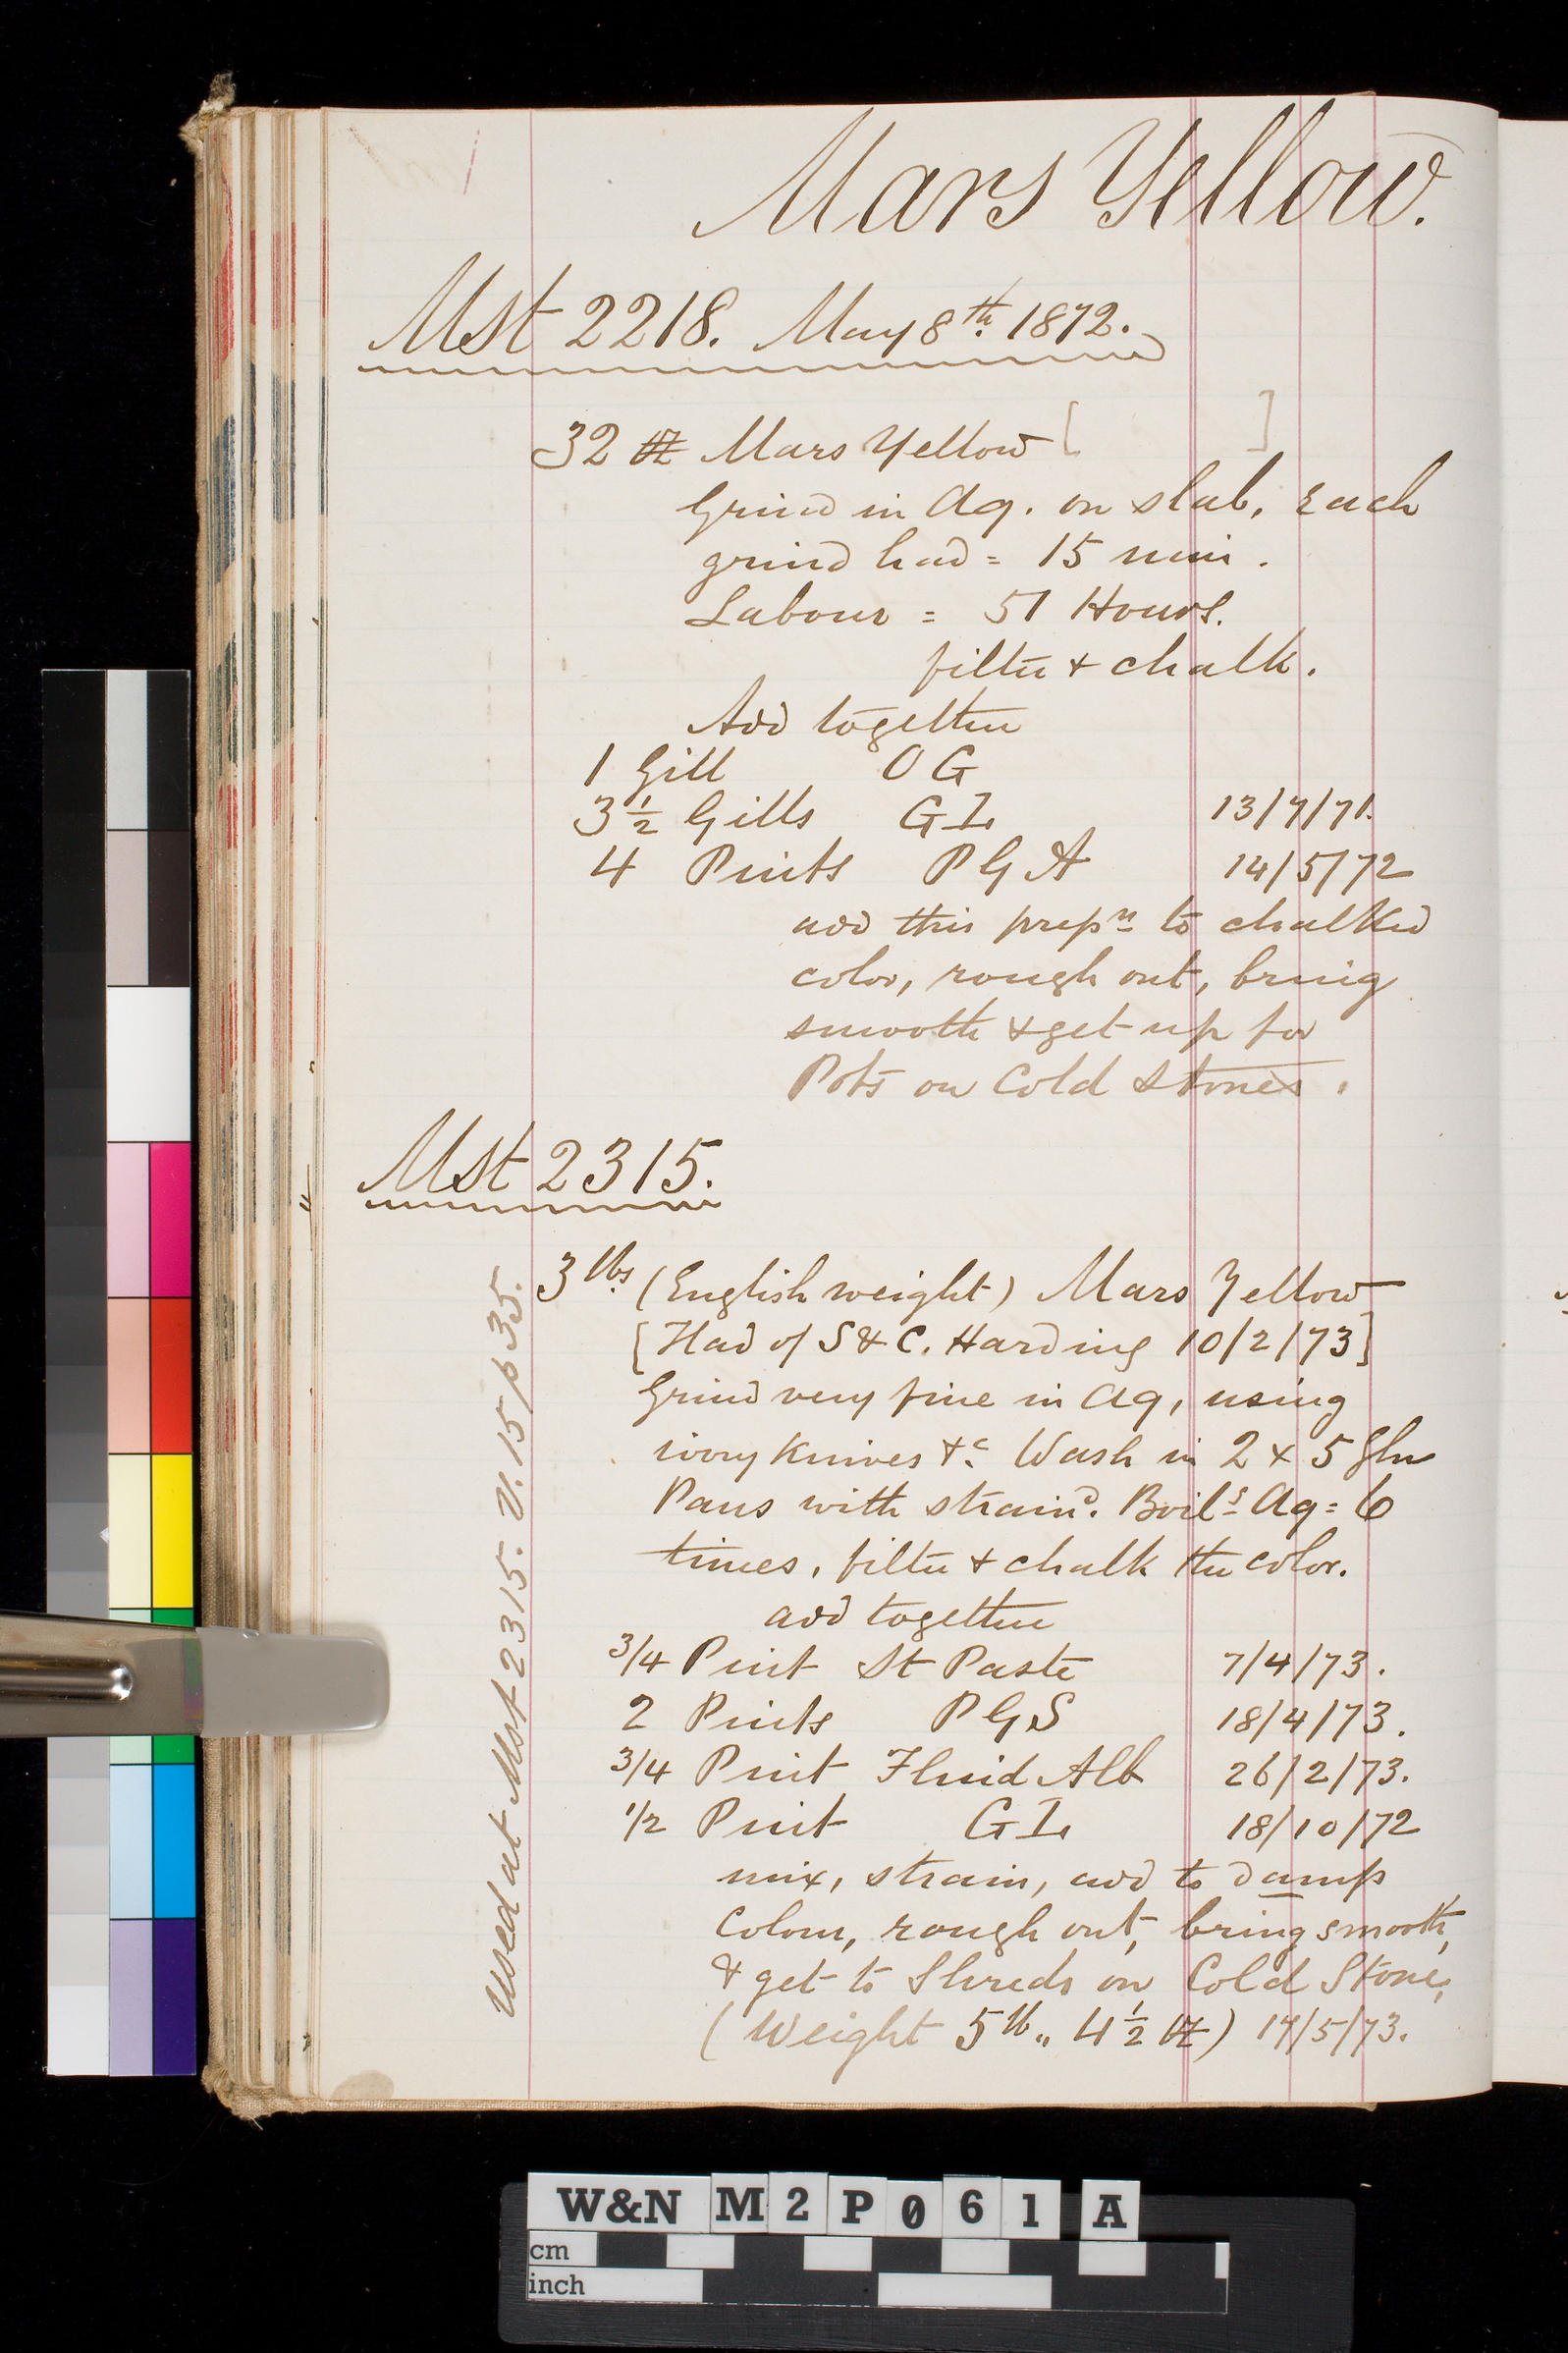 Mars Yellow.
Mst 2218. May 8th. 1872.
32 oz Mars Yellow [ ]
Grind in Aq. on slab, each
grind had = 15 min.
Labour = 51 Hours.
filter & chalk.
Add together
1 Gill O G
3 1/2 Gills G I 13/7/71.
4 Pints P G A 14/5/72
add this prepn to chalked
color, rough out, bring
smooth & get up for
Pots on Cold Stones.
Mst 2315.
3 lbs. (English weight) Mars Yellow
[Had of S & C. Harding 10/2/73]
Grind very fine in Aq, using
ivory Knives &c. Wash in 2 x 5 Gln
Pans with straind. Boilg Aq = 6
times, filter & chalk the color.
add together
3/4 Pint St Paste 7/4/73.
2 Pints P G S 18/4/73.
3/4 Pint Fluid Alb 26/2/73.
1/2 Pint G I 18/10/72
mix, strain, add to damp
Colour, rough out, bring smooth,
& get to Shreds on Cold Stones,
(Weight 5 lb,, 4 1/2 oz) 17/5/73.
Used at Mst 2315. V. 15 p 35.
W&N M2P061 A
cm
inch